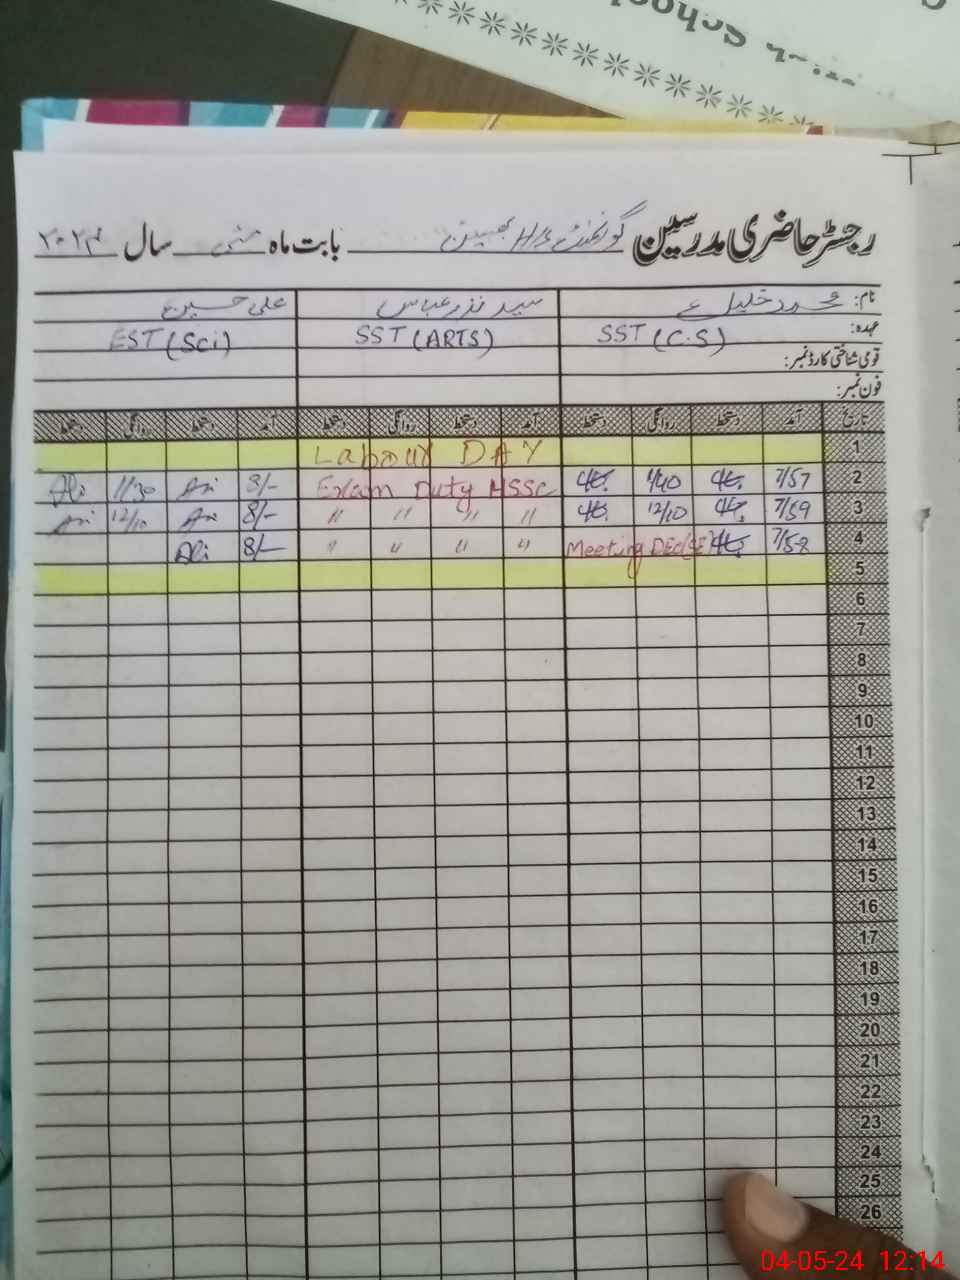 School
رجسٹر حاضری مدرسین گورنمنٹ H/S بھسین بابت ماہ مئی سال ۲۰۲۴
نام: محمود خلیل سید نذر عباس علی حسین
عہدہ: SST (C.S) SST (ARTS) EST (Sci)
قومی شناختی کارڈ نمبر:
فون نمبر:
تاریخ آمد دستخط روانگی دستخط آمد دستخط روانگی دستخط آمد دستخط روانگی دستخط
1 Labour DAY
2 7/57 1/40 Exam Duty HSSC 8/- Ali 1/30 Ali
3 7/59 12/10 " " " " 8/- Ali 12/10 Ali
4 7/58 Meeting " " " " 8/- Ali
5
6
7
8
9
10
11
12
13
14
15
16
17
18
19
20
21
22
23
24
25
26
04-05-24 12:14